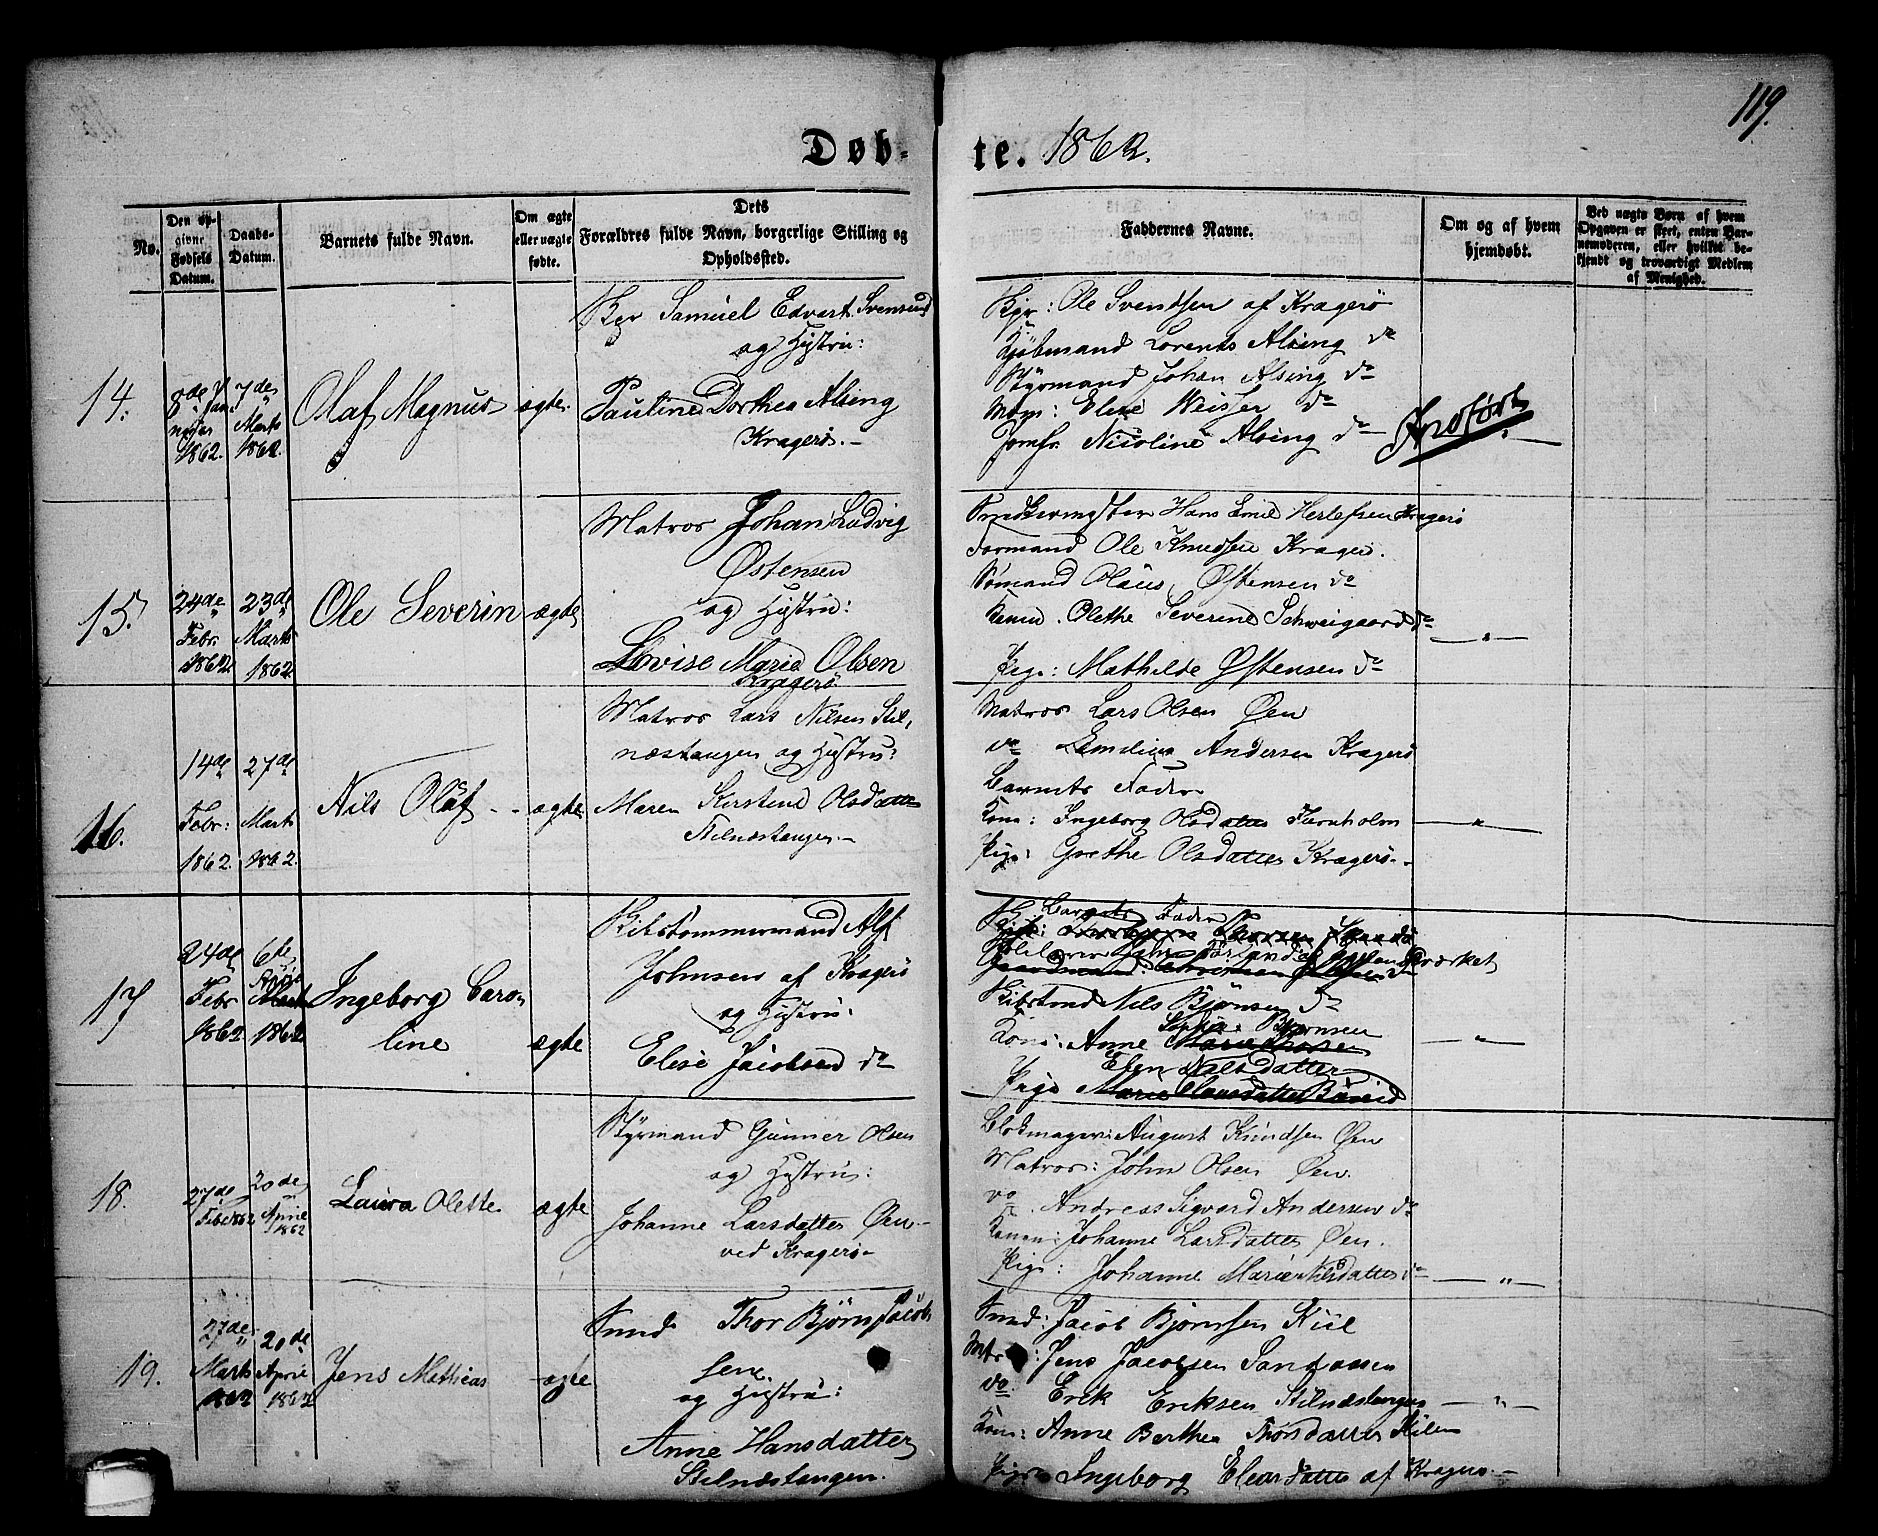 119.
Døb-te. 1862.
No.
Den op-
givne
Fødsels
Datum.
Daabs-
Datum.
Barnets fulde Navn.
Om ægte
eller uægte
fødte.
Dets
Forældres fulde Navn, borgerlige Stilling og
Opholdssted.
Faddernes Navne.
Om og af hvem
hjemdøbt.
Ved uægte Børn af hvem
Opgaven er skeet, enten Bar-
nemoderen, eller hvilket be-
kjendt og troværdigt Medlem
af Menighed.
14.
8de Jan
1862.
7de
Marts
1862.
Olaf Magnus
ægte
Samuel Edvart Svensen
og Hustru:
Pauline Dorthea Alsing
Kragerö. -
Ole Svendsen af Kragerö
Kjöbmand Lorents Alsing do
Styrmand Johan Alsing do
Mdm: Elise Weisser do
Jomfr Nicoline Alsing do
Indført
15.
24de
Febr
1862
23de
Marts
1862
Ole Severin
ægte
Matros Johan Ludvig
Østensen
og Hustru:
Lovise Marie Olsen
Kragerö
Hans Emil Herlefsen Kragerö
Formand Ole Knudsen Kragerö.
Sömand Olaus Østensen do
Olethe Severine Schweigaard do
Pige: Mathilde Østensen do
16.
14de
Febr:
1862.
27de
Marts
1862.
Nils Olaf
ægte
Matros Lars Nilsen Stil,
næstangen og Hustru:
Maren Kirstine Olsdatter
Stilnæstangen -
Matros Lars Olsen Øen
do Andersen Kragerö
Barnets Fader
Kone: Ingeborg Olsdatter Furuholm
Pige: Grethe Olsdatter Kragerö -
17
24de
Febr
1862
6te
April
1862
Ingeborg Caro
line
ægte
Skibstömmermand Alf
Johnsen af Kragerö
og Hustru:
Elise Jacobsen do
Barnets Fader
Skibstmd Nils Bjönsen do
Sophie Bjørnsen
Kone: Anne
Elen Nilsdatter
Pige
18.
27de
Febr 1862
20de
April
1862
Laura Olette
ægte
Styrmand Gunner Olsen
og Hustru:
Johanne Larsdatter Øen
ved Kragerö -
Blokmager: August Knudsen Øen
Matros: John Olsen Øen.
do. Andreas Sigvard Andersen do
Konen: Johanne Larsdatter Øen.
Pige: Johanne Marie Nilsdatter do
19.
27de
Marts
1862
20de
April
1862
Jens Mathias
ægte
Smed Thor Bjørn Jacob
sen
og Hustru:
Anne Hansdatter
Stilnæstangen.
Smed: Jacob Bjørnsen Kiil
Jens Jacobsen Sandaasen
do. Erik Eriksen Stilnæstangen
Kone: Anne Berthea Thorsdatter Kilen
Pige Ingeborg af Kragerö. -